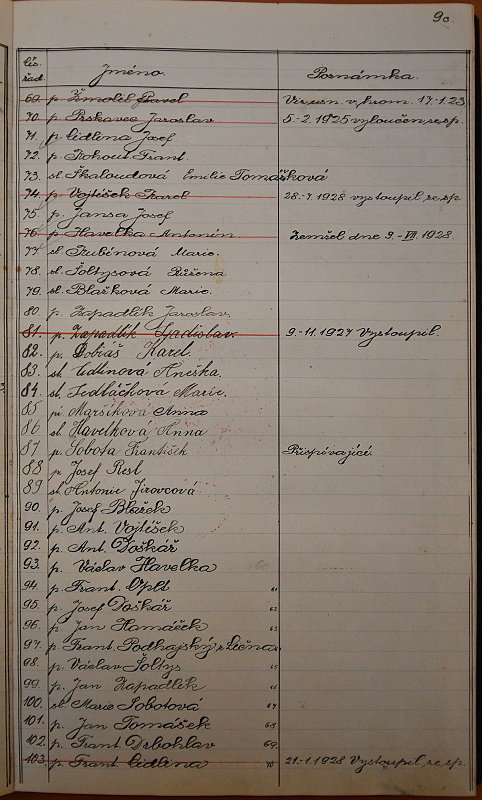 9c.
čís. řad. Jméno Poznámka.
69. p. Žmolil Pavel 17.1.23
70. p. Prskavec Jaroslav 5.-2.1925 vyloučen ze sp.
71. p. Cidlina Josef
72. p. Kohout Frant.
73. sl. Škaloudová Emilie Tomášková
74. p. Vojtíšek Karel 28.-7.1928 vystoupil ze sp.
75. p. Jansa Josef
76. p. Havelka Antonín Zemřel dne 9.-VII.1928.
77. sl. Rubínová Marie.
78. sl. Šoltysová Růžena
79. sl. Blažková Marie.
80. p. Zapadlík Jaroslav.
81. p. Zapadlík Ladislav. 9.-11.1927 Vystoupil.
82. p. Tobiáš Karel.
83. sl. Cidlinová Anežka.
84. sl. Sedláčková Marie.
85 pí Maršíková Anna
86 sl. Havelková Anna
87 p. Sobota František Přispívající.
88 p. Josef Resl
89 sl. Antonie Jirovcová
90. p. Josef Blažek
91. p. Ant. Vojtíšek
92. p. Ant. Doškář
93. p. Václav Havelka
94. p. Frant. Oplt 61
95. p. Josef Doškář 62
96. p. Jan Hamáček 63
97. p. Frant. Podhajský z Lična
98. p. Václav Šoltys 65
99. p. Jan Zapadlík
100. sl. Marie Sobotová 67
101. p. Jan Tomášek 68
102. p. Frant Drbohlav 69.
103. p. Frant Cidlina 70 21.-1.1928 Vystoupil ze sp.